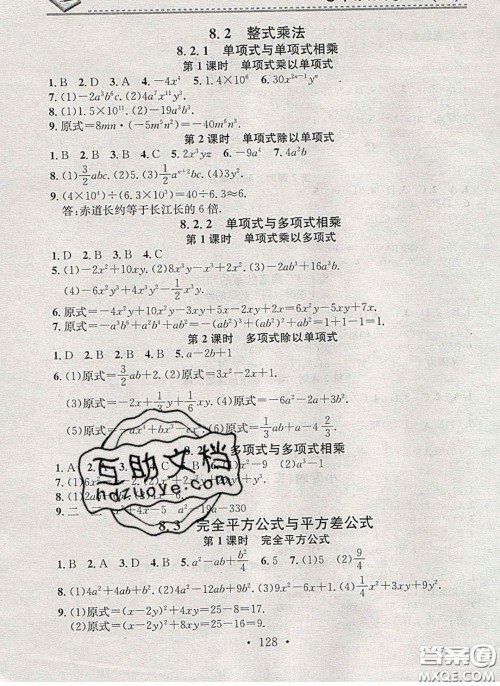 8.2 整式乘法
8.2.1 单项式与单项式相乘
第1课时 单项式乘以单项式
1.B 2.D 3.A 4.-4x⁴ 5.1.4×10⁶ 6.30x²ⁿ⁻¹yⁿ
7.(1)-2a³b⁶c. (2)4a⁷b⁵.
8.(1)1.5×10¹¹. (2)-19a³b³.
9.原式=8mn·(-5m⁵n²)=-40m⁶n³.
第2课时 单项式除以单项式
1.B 2.B 3.B 4.C 5.2x³yz 6.-9a⁴ 7.4a²b
8.(1)3/2abc. (2)5. (3)1/2aⁿ⁺²b. (4)-2ab.
9.(4×10⁴)÷(6.3×10³)=40÷6.3≈6.
答:赤道长约等于长江长的6倍.
8.2.2 单项式与多项式相乘
第1课时 单项式乘以多项式
1.D 2.B 3.A 4.B
5.(1)-2x²+10xy. (2)8x³y-x³+2x². (3)-2ab³+16a³b.
(4)-6x³y-x²y²+1/2x³y.
6.原式=-4x²y+10xy-3xy+5x²y-2xy+2x=x²y+5xy+2x.
7.原式=-a³b⁶+a²b⁴+ab²=-(ab²)³+(ab²)²+ab²=1+1-1=1.
第2课时 多项式除以单项式
1.D 2.B 3.B 4.B 5.a-2b+1
6.(1)原式=3/2ab+2. (2)原式=3x²-2x+1.
(3)原式=-2x+1/3y+1/6. (4)原式=-6a²-2a+3b².
(5)原式=
互助文档
hdzuoye.com
多项式与多项式相乘
1.A
7.(1)6x²
9.二
8.3 完全平方公式与平方差公式
第1课时 完全平方公式
1.B 2.D 3.C 4.B 5.a²-ab+b²/4 6.5 7.(1)5. (2)9/4
8.(1)4a²+4ab+b². (2)16a²-8ab+b². (3)4x²+12xy+9y².
9.(1)原式=(x-2y)²+18=25+18=43.
(2)原式=(x-2y)²-16=25-16=9.
· 128 ·
答案圈
MXQE.COM